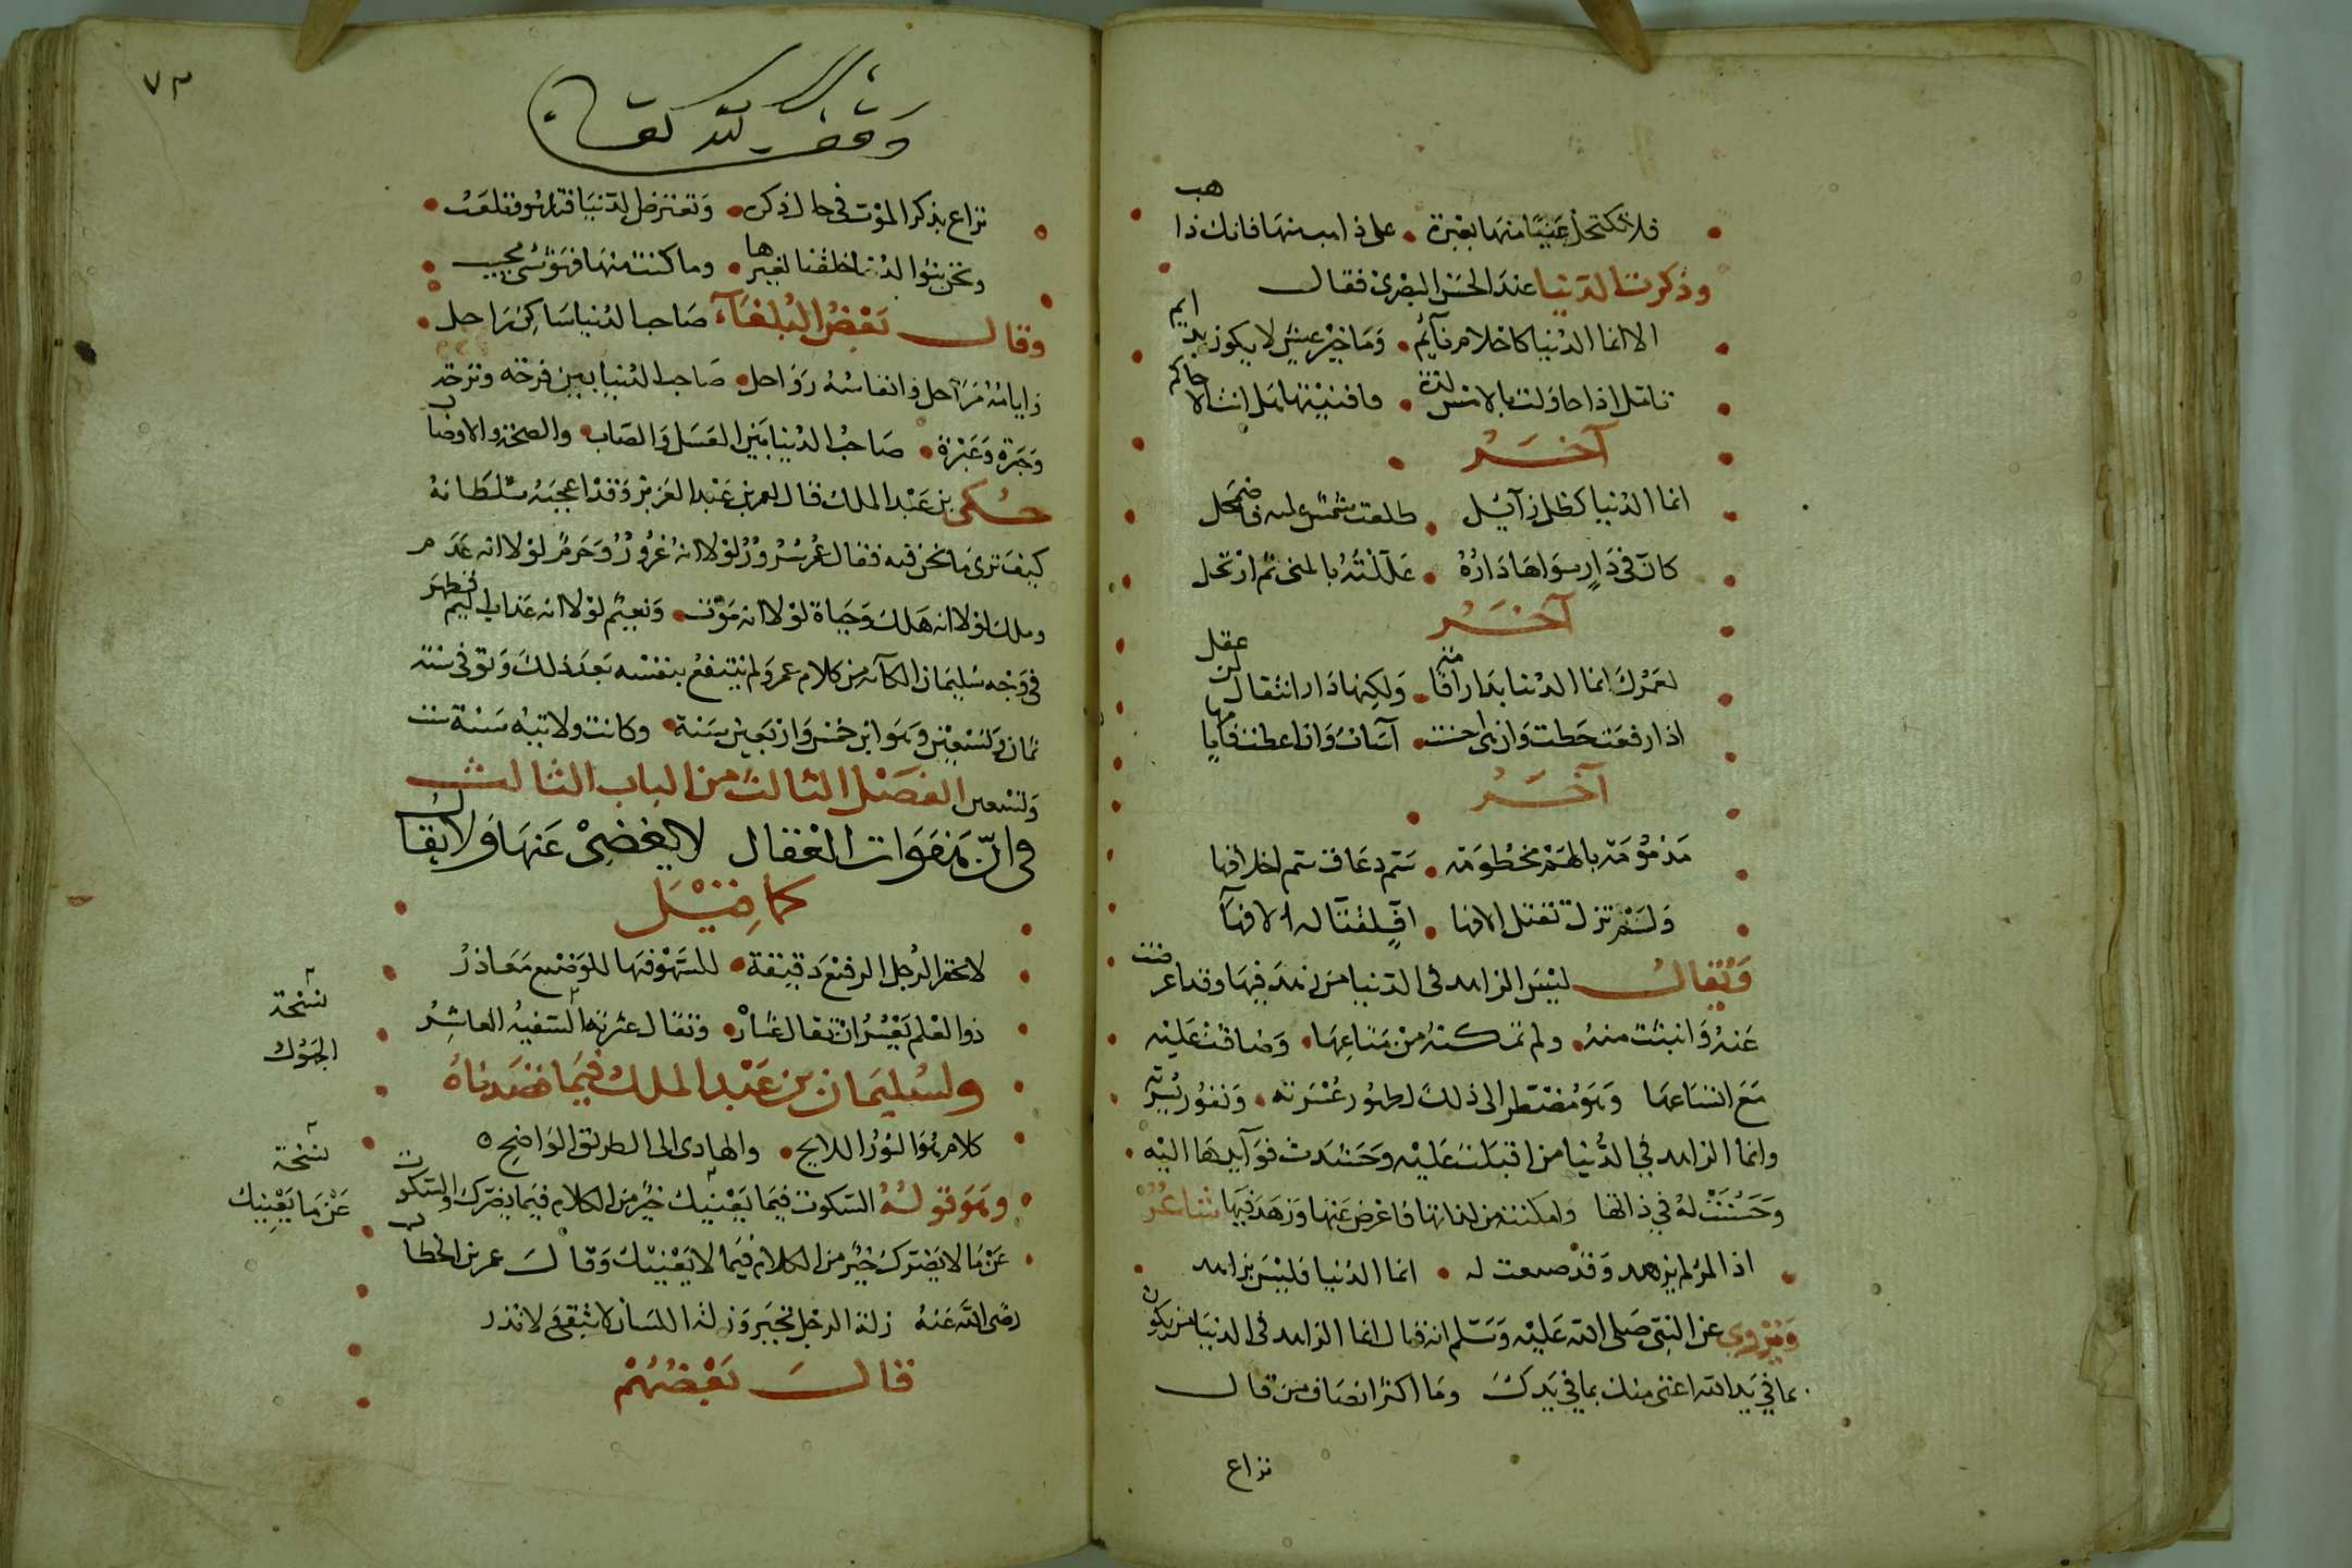 فلا تكتحل عينا منها بعبرة • على ذاهب منها فانك ذاهب
وذكرت الدنيا عند الحسن البصري فقال
الا انما الدنيا كاحلام نايم • وما خير عيش لا يكون بدايم
تامل اذا ما نلت بالامس لذة • فافنيتها هل انت الا حاكم
آخر
انما الدنيا كظل زآيل • طلعت شمس عليه فاضمحل
كان في دار سواها داره • عللته بالمنى ثم ارتحل
آخر
لعمرك انما الدنيا بدار اقامة • ولكنها دار انتقال لمن عقل
اذا رفعت حطت وان هي احسنت • اسات وان اعطت
آخر
مذمومة بالهم مخطومة • سم دعاف سم اخلافها
ولم تزل تقتل الافها • اف لقتالة الافها
ويقال ليس الزاهد في الدنيا من زهد فيها وقد اعرضت
عنه وانبتت منه • ولم تمكنه من متاعها • وضاقت عليه
مع اتساعها وهو مضطر الى ذلك لظهور عسرته • ونفور يسرته
وانما الزاهد في الدنيا من اقبلت عليه وحشدت فوآيدها اليه •
وحسنت له في ذاتها وامكنته من لذاتها فاعرض عنها وزهد فيها شاعر
اذا المرء لم يزهد وقد صبغت له • انما الدنيا فليس بزاهد
ويروى عن النبي صلى الله عليه وسلم انه قال انما الزاهد في الدنيا من يكون
بما في يد الله اغنى منك بما في يدك وما اكثر انصاف من قال
نراع
٧٣
وقف لله تعالى
نراع بذكر الموت في حال ذكره • وتعترض الدنيا فنلهو ونلعب •
ونحن بنوا الدنيا خلقنا لغيرها • وما كنت منها فهو شي محبب
وقال بعض البلغاء صاحب الدنيا ساكن راحل •
وايامه مراحل وانفاسه رواحل • صاحب الدنيا بين فرحه وترحه
وحبرة وعبرة • صاحب الدنيا بين العسل والصاب • والصحة والاوصاب
حكى بن عبد الملك قال لعمر بن عبد العزيز وقد اعجبه سلطانه
كيف ترى ما نحن فيه فقال عمر سرور لولا انه غرور لولا انه عدم
وملك لولا انه هلك وحياة لولا انه موت • ونعيم لولا انه عذاب اليم فظهر
في وجه سليمان الكآبه من كلام عمر ولم ينتفع بنفسه بعد ذلك وتوفي سنة
ثمان وتسعين وهو ابن خمس واربعين سنة • وكانت ولايته سنة ست
وتسعين الفصل الثالث من الباب الثالث
في ان هفوات المقال لا يغضى عنها ولا يقال
كما قيل
لا تحقر الرجل الرفيع دقيقة • للسهو فيها للوضيع معاذر
ذو العلم يعسر ان تقال عثاره • وتقال عثرته السفيه العاثر
ولسليمان بن عبد الملك فيما قصدناه
كلام هو النور اللايح • والهادي الى الطريق الواضح ٥
وهو قوله السكوت فيما يعنيك خير من الكلام فيما يضرك والسكوت
عن ما لا يضرك خير من الكلام فيما لا يعنيك وقال عمر بن الخطاب
رضى الله عنه زلة الرجل تجبر وزلة اللسان لا تبقى ولا تذر
قال بعضهم
نسخة
الجهول
نسخة
عن ما يعنيك